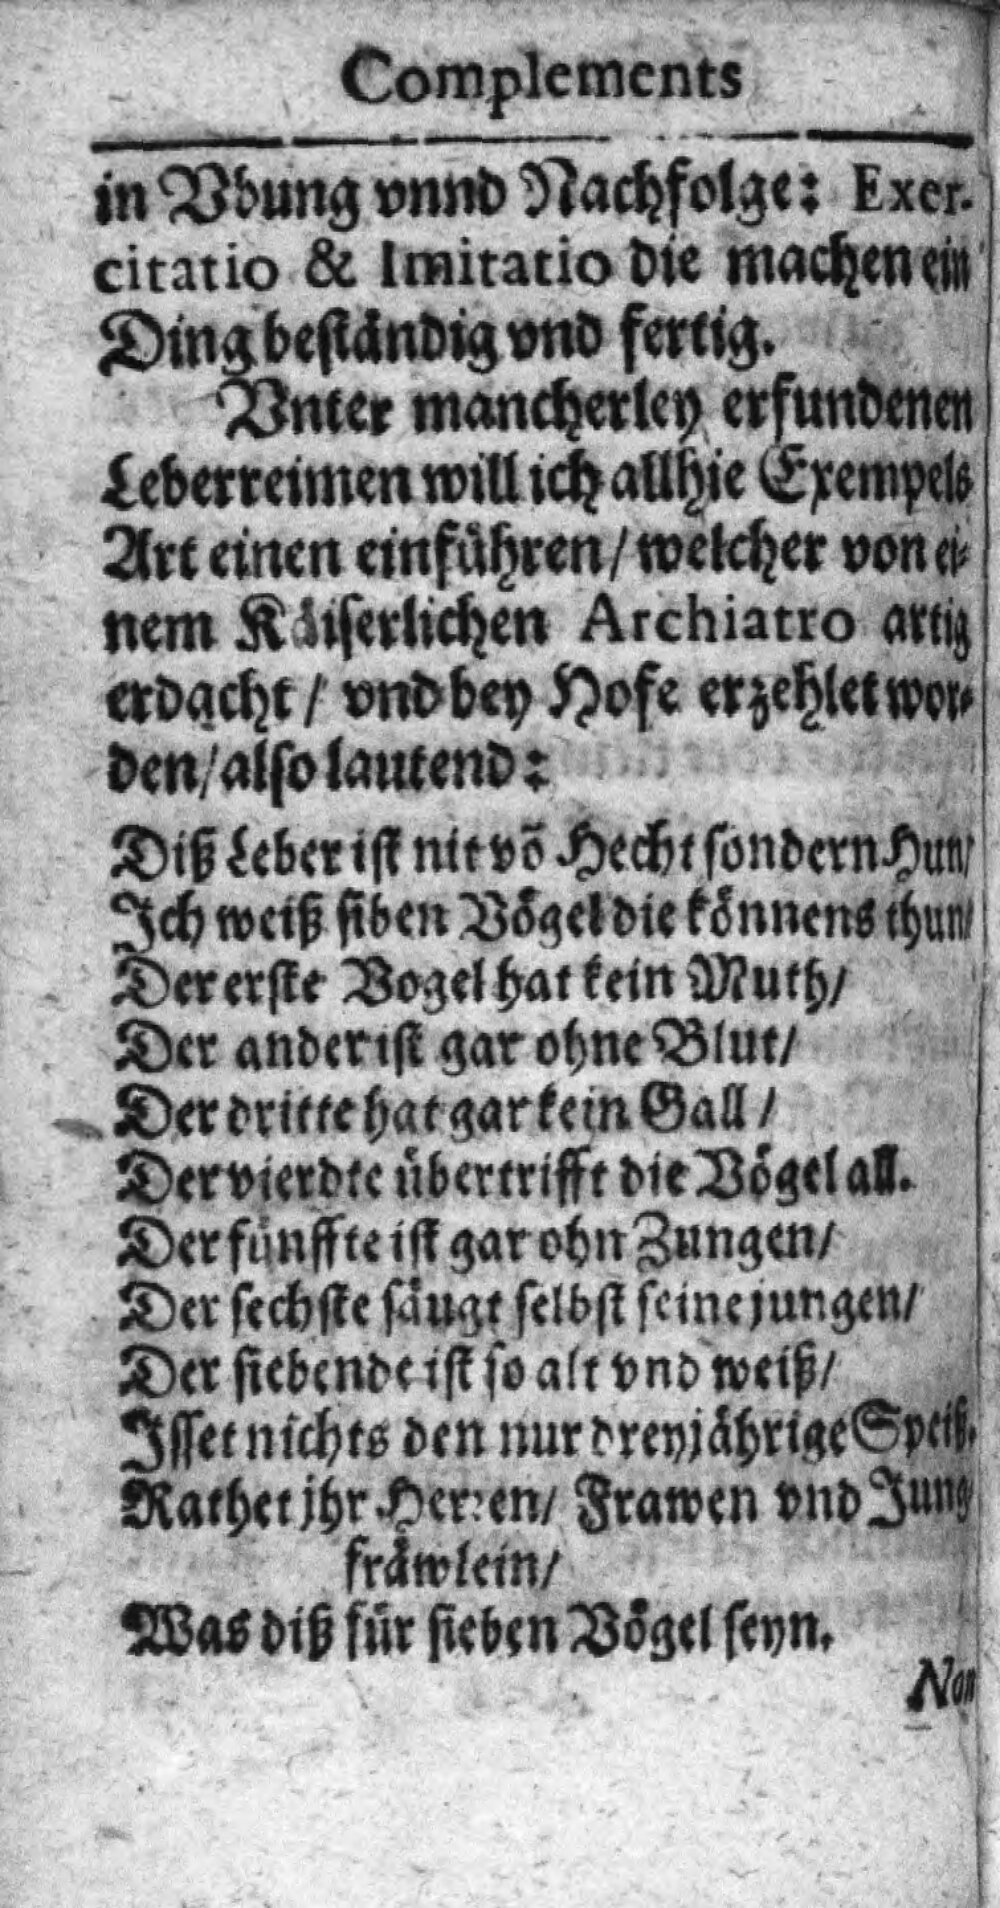 Complements
in Vbung vnnd Nachfolge: Exer-
citatio & Imitatio die machen ein
Ding beständig vnd fertig.
Vnter mancherley erfundenen
Leberreimen will ich allhie Exempels
Art einen einführen/ welcher von ei-
nem Käiserlichen Archiatro artig
erdacht/ vnd bey Hofe erzehlet wor-
den/ also lautend:
Diß Leber ist nit võ Hecht sondern Hun/
Ich weiß siben Vögel die können s thun/
Der erste Vogel hat kein Muth/
Der ander ist gar ohne Blut/
Der dritte hat gar kein Gall/
Der vierdte übertrifft die Vögel all.
Der fünffte ist gar ohn Zungen/
Der sechste säugt selbst seine jungen/
Der siebende ist so alt vnd weiß/
Isset nichts den nur dreyjährige Speiß.
Rathet jhr Herren/ Frawen vnd Jung-
fräwlein/
Was diß für sieben Vögel seyn.
Non